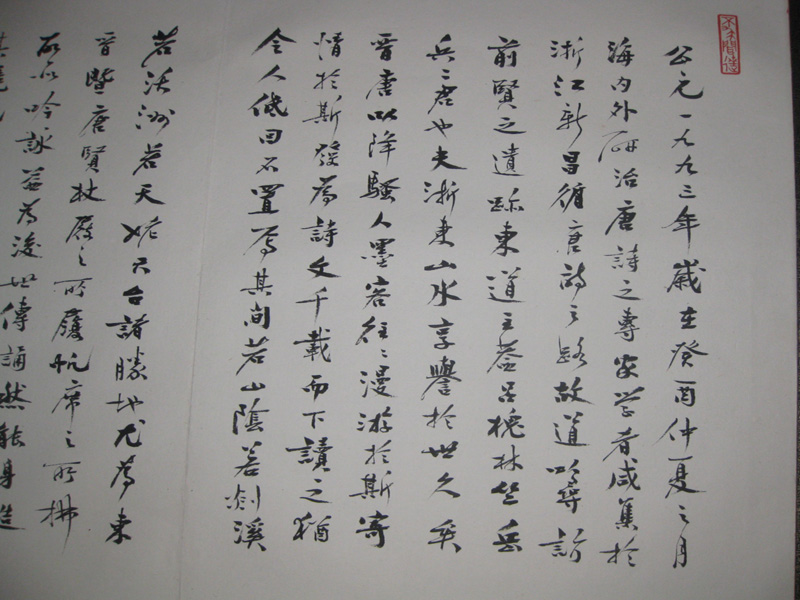 公元一九九三年歲在癸酉仲夏之月
海内外研治唐詩之專家学者咸集於
浙江新昌循唐詩之路故道以尋訪
前賢之遺跡東道主蓋呂槐林竺岳
兵二君也夫浙東山水享譽於世久矣
晋唐以降騷人墨客往々漫游於斯寄
情於斯發為詩文千載而下讀之猶
令人低回不置焉其间若山陰若剡溪
若沃洲若天姥天台諸勝地尤為東
晋暨唐賢杖屨之所履帆席之所拂
而所吟詠益為後世傳誦然能身造